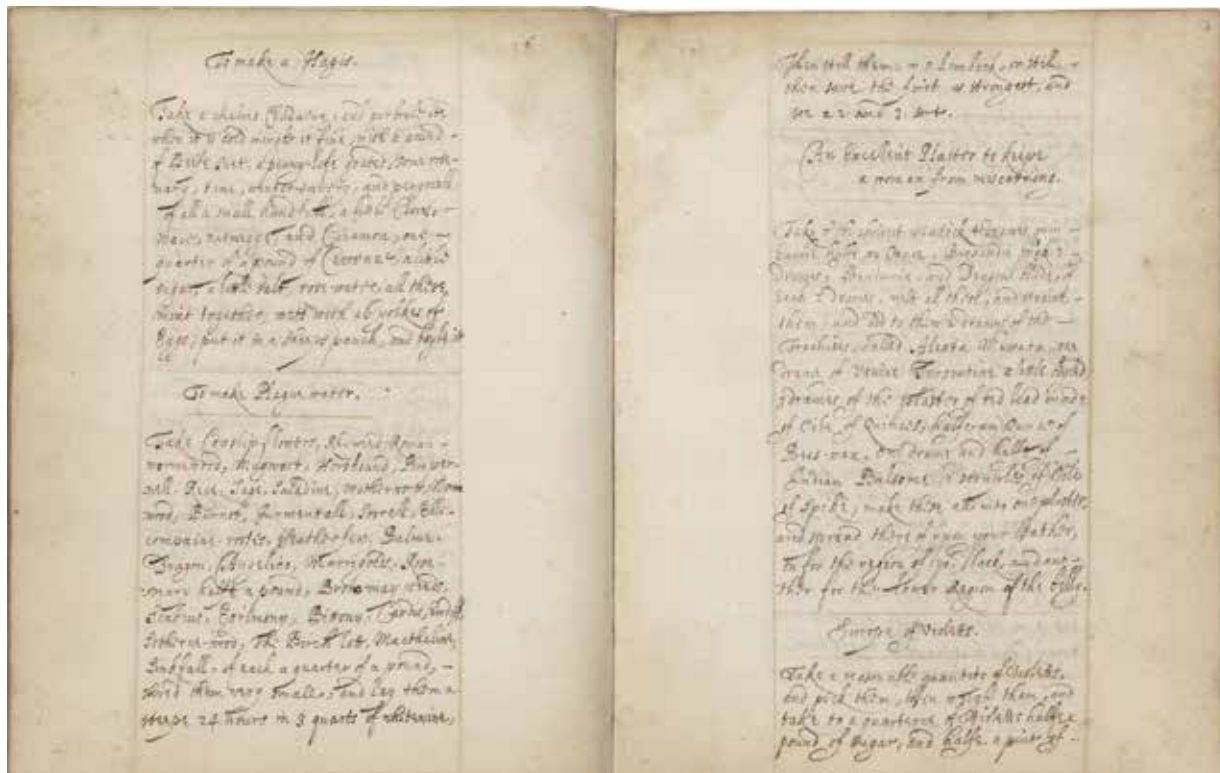 To make a Hagis.
Take a calves Chadarne, and perboile it,
when it is cold mingle it fine, with a pound
of Biefe suet, a penny-lofe grated, some rose-
mary, time, winter-savory, and penyroall
of all a small handfull, a little Cloves,
mace, nutmegs, and Cinamon, one
quarter of a pound of Currans, a little
sugar, a little salt, rose-water, all these
mixt together, well with 16 yolkes of
Eggs; put it in a sheeps panch, and boyle it
To make Plague water.
Take Couslip flowers,
wormewood, Mugwort, Horehound, Pimper-
nell, Rue, Sage, Saladine, motherwort,
wood, Burnet, Turmentall, Sorrell, Elle-
compaine rootes, Featherfew, Balme,
Dragon, Angelica, Marrigolds, Rose-
mary halfe a pound,
Egrimony, Bitony, Cardus,
of each a quarter of a pound,
shred them very small, and lay them a
steepe 24 hours in 3 quarts of whitewine,
Then still them in a Lembeck, or still
then save the first as strongest, and
so a 2 and 3 sort.
An Excellent Plaster to keepe
a woman from miscarrying.
Take of the
Burgundie pitch 2
dragmes, Benjamin, and Dragons blood, of
each 2 drames, melt all these, and
them, and add to them 2 drams of the
Trochises, called Alepta Muscata, one
drame of Venice Turpentine a little
drames of the plaster of red lead made
of Oile of Quinces, halfe an Ounce of
Bees-wax, one drame and halfe of
Indian Balsome, of Oile
of Spike, make these all into one plaster,
and spread there of upon your leather,
for the region of the Back, and ano-
ther for the Lower Region of the Belly.
Sirrope of Violets.
Take a reasonable quantite of Violets,
and pick them, then weigh them, and
take to a quarterne of Violets halfe a
pound of Sugar, and halfe a pint of